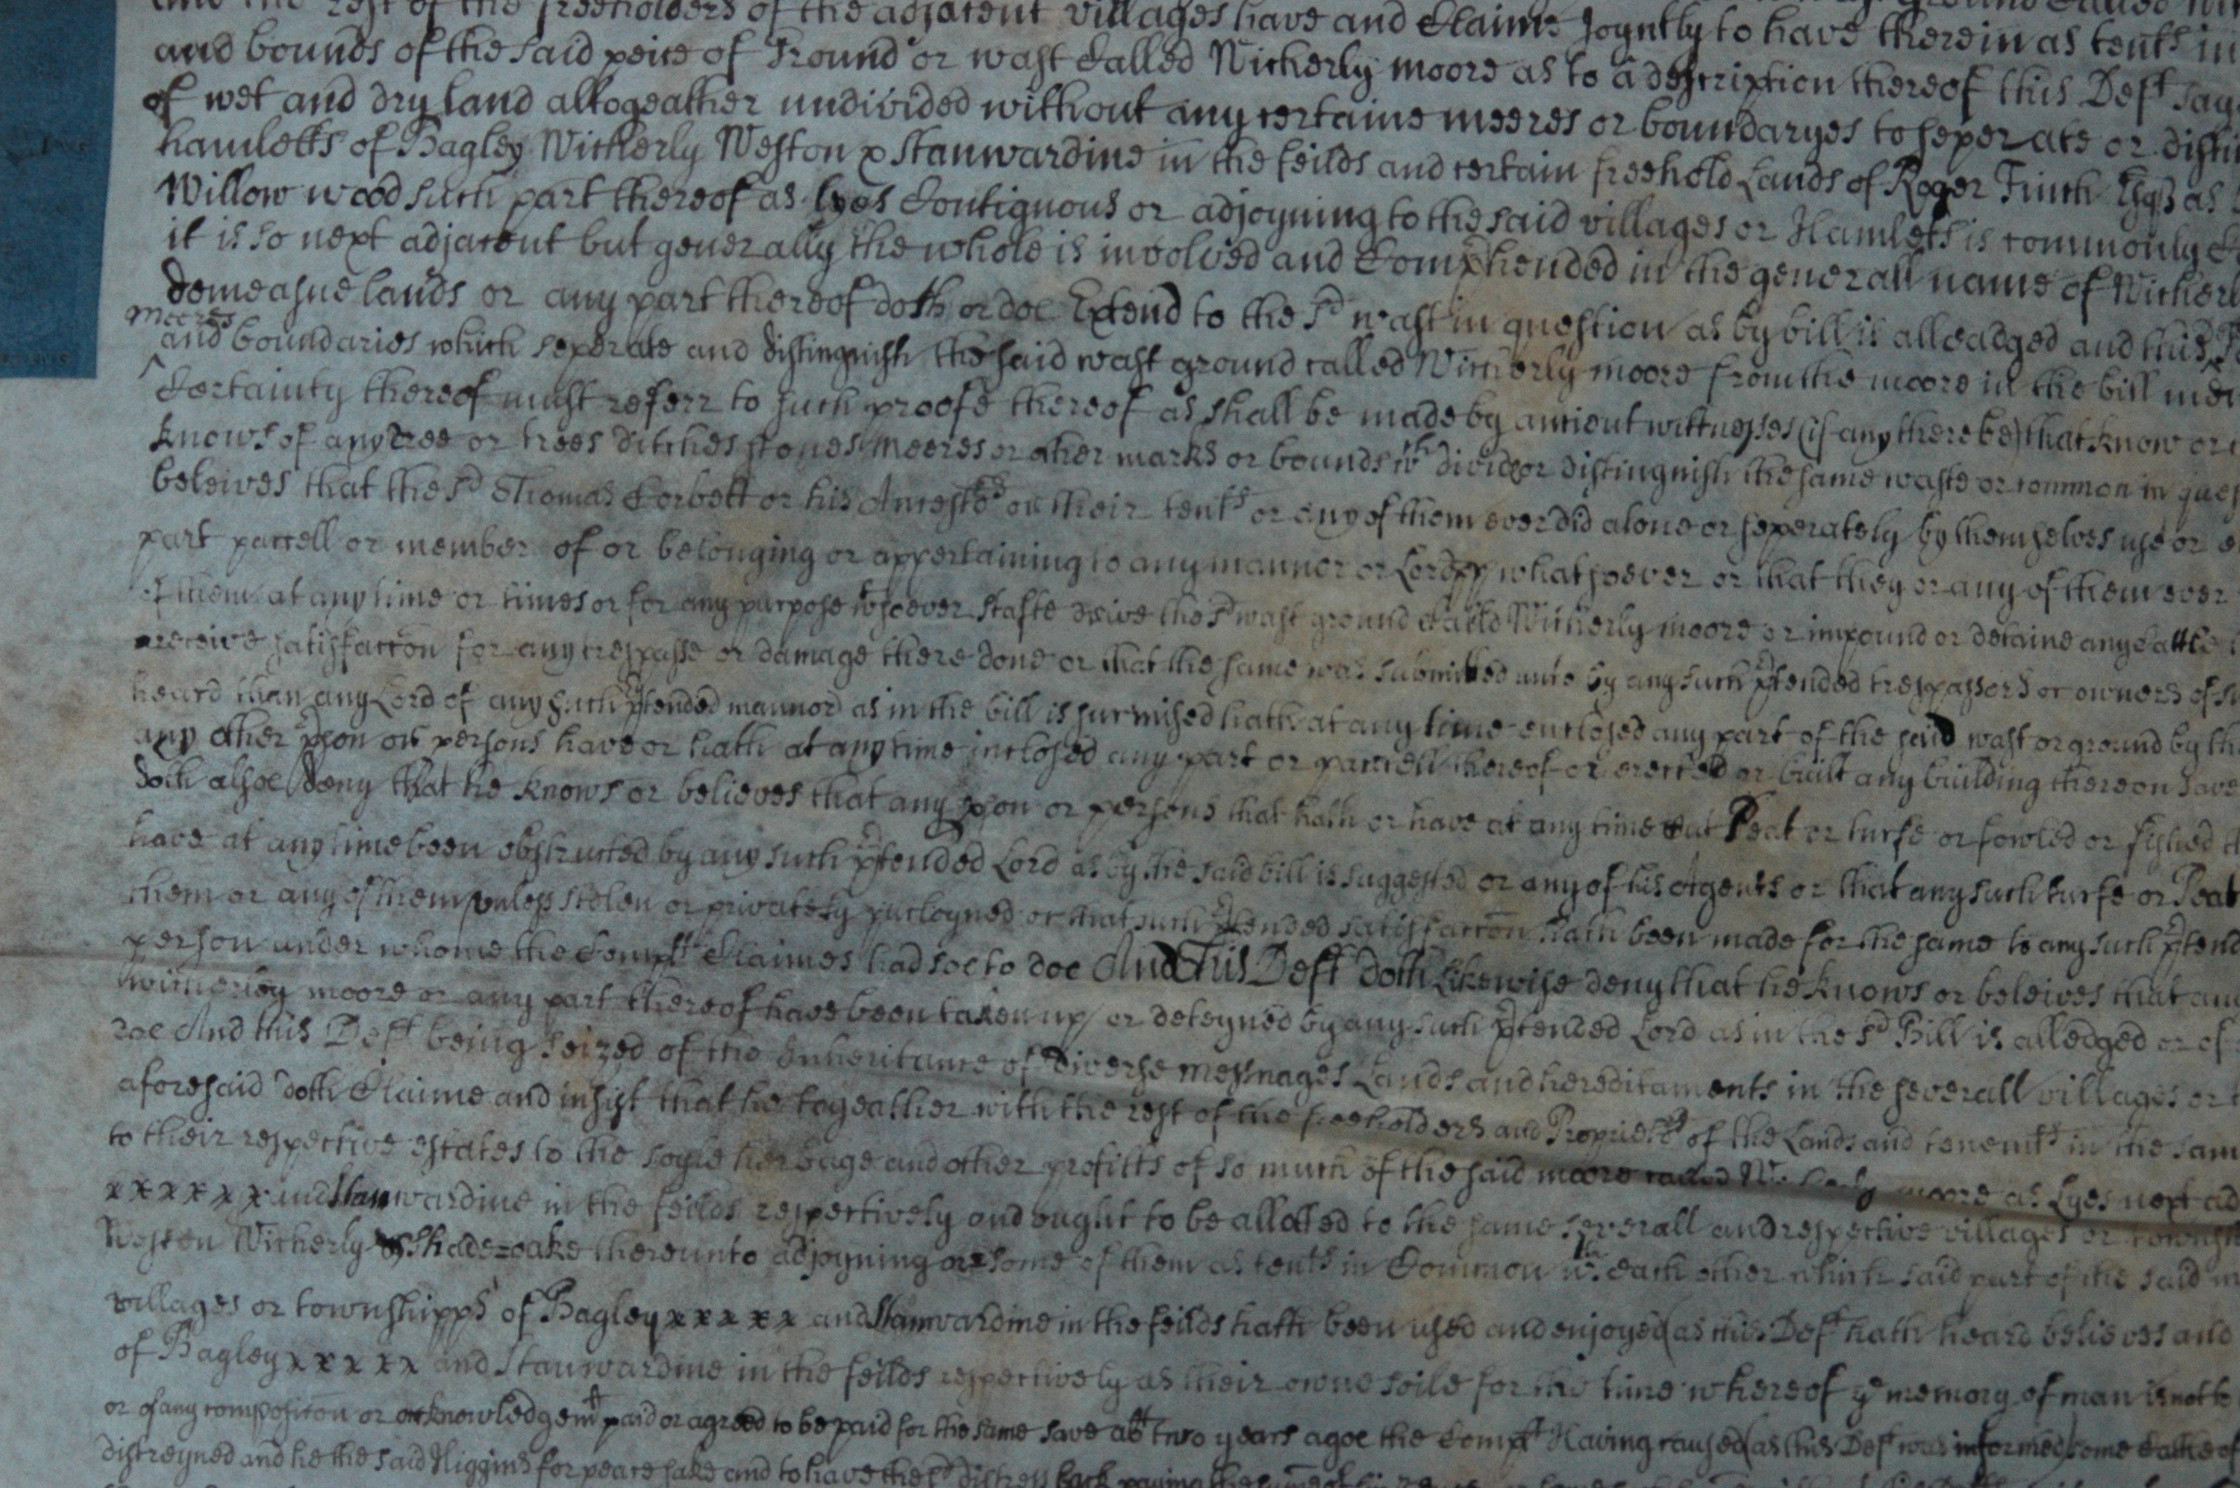 and the rest of the freeholders of the adjacent villages have and Claime Joyntly to have therein as tents in
and bounds of the said peice of Ground or wast Called Witherly moore as to a description thereof this Deft say
of wet and dry land altogeather undivided without any certaine meeres or boundaryes to seperate or distin
hamletts of Bagley Witherly Weston & Stanwardine in the feilds and certain freehold Lands of Roger Finch Esqs as
Willow wood such part thereof as lyes Contiguous or adjoyning to the said villages or Hamletts is commonly
it is so next adjacent but generally the whole is involved and Comprhended in the generall name of Witherl
demeasne lands or any part thereof doth or doe Extend to the sd wast in question as by bill is alleadged and this
meeres
and boundaries which seperate and distinguish the said wast ground called Witherly moore from the moore in the bill men
Certainty thereof must referr to such proofe thereof as shall be made by antient wittnesses (if any there be) that know or
knows of any tree or trees ditches stones meeres or other marks or bounds wch divide or distinguish the same waste or common in ques
beleives that the sd Thomas Corbett or his Ancestrs or their tents or any of them ever did alone or seperately by themselves use or
part parcell or member of or belonging or appertaining to any mannor or Lordpp whatsoever or that they or any of them ever
of them at any time or times or for any purpose whsoever drive the sd wast ground Called Witherly moore or impound or detaine any Cattle
receive satisfaccon for any trespasse or damage there done or that the same was submitted unto by any such prtended trespassers or owners of
heard than any Lord of any such prtended mannor as in the bill is surmised hath at any time enclosed any part of the said wast or ground by
any other pson or persons have or hath at any time inclosed any part or parcell thereof or erected or built any building thereon save
doth alsoe deny that he knows or believes that any pson or persons that hath or have at any time Cut Peat or turfe or fowled or fished
have at any time been obstructed by any such prtended Lord as by the said bill is suggested or any of his Agents or that any such turfe or Peat
them or any of them unless stolen or privately purloyned or that such prtended satisfaccon hath been made for the same to any such prtend
person under whome the Complt Claimes had soe to doe And This Deft doth likewise deny that he knows or beleives that
witherley moore or any part thereof have been taken up or deteyned by any such prtended Lord as in the sd Bill is alledged or of
doe And this Deft being seized of the Inheritance of diverse messuages Lands and hereditaments in the severall villages or
aforesaid doth Claime and insist that he togeather with the rest of the freeholders and Propriettrs of the Lands and tenemts in the sam
to their respective estates to the soyle herbage and other profitts of so much of the said moore called Witherly moore as Lyes next ad
xxxxxx and Stanwardine in the feilds respectively and ought to be allotted to the same severall and respective villages or townsh
Weston Witherly & Shade=oake thereunto adjoyning or some of them as tents in Common wth each other which said part of the said m
villages or townshipps of Bagley xxxxx and Stanwardine in the feilds hath been used and enjoyed (as this Deft hath heard believes and
of Bagley xxxxx and Stanwardine in the feilds respectively as their owne soile for the time whereof ye memory of man is not to
or of any composicon or acknowledgemt paid or agreed to be paid for the same save abt two years agoe the Complt Having caused (as this Deft was informed) some Cattle of
distreyned and he the said Higgins for peace sake and to have the sd distress back paying the